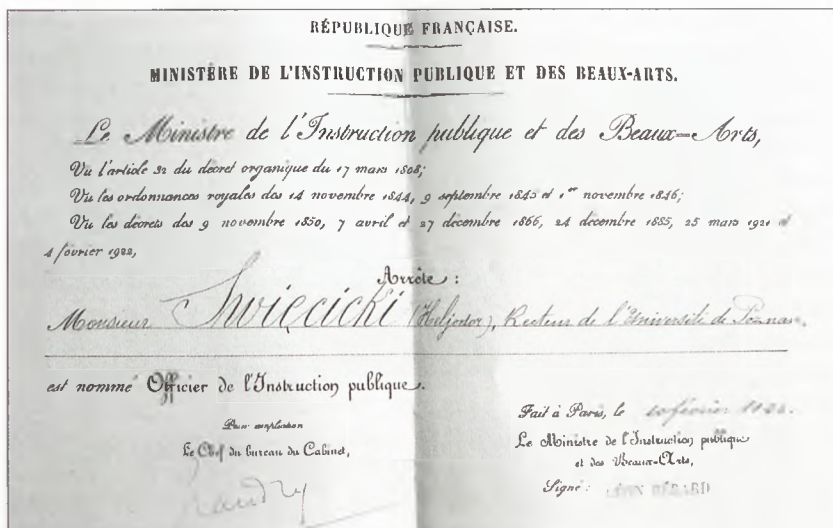 RÉPUBLIQUE FRANÇAISE.
MINISTÈRE DE L'INSTRUCTION PUBLIQUE ET DES BEAUX-ARTS.
Le Ministre de l'Instruction publique et des Beaux-Arts,
Vu l'article 32 du décret organique du 17 mars 1808;
Vu les ordonnances royales des 14 novembre 1844, 9 septembre 1845 et 1er novembre 1846;
Vu les décrets des 9 novembre 1850, 7 avril et 27 décembre 1866, 24 décembre 1885, 25 mars 1921 et
4 février 1922,
Arrête :
Monsieur Swięcicki (Heljodor), Recteur de l'Université de Poznan.
est nommé Officier de l'Instruction publique.
Pour ampliation
Le Chef du bureau du Cabinet,
Fait à Paris, le février
Le Ministre de l'Instruction publique
et des Beaux-Arts,
Signé : LÉON BÉRARD